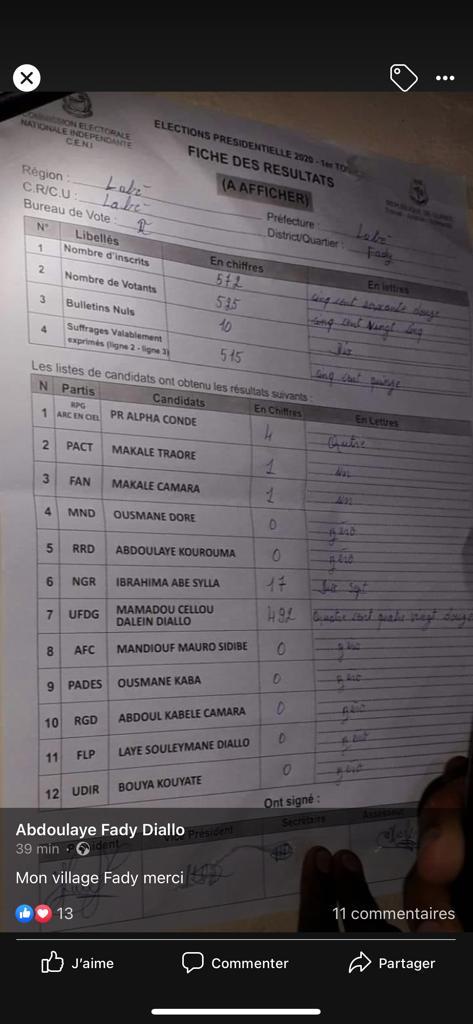 COMMISSION ELECTORALE
NATIONALE INDEPENDANTE
C.E.N.I
ELECTIONS PRESIDENTIELLE 2020 - 1er TOUR
FICHE DES RESULTATS
(A AFFICHER)
REPUBLIQUE DE GUINEE
Région : Labé
Préfecture : Labé
C.R/C.U : Labé
District/Quartier : Fady
Bureau de Vote : 2
N° Libellés En chiffres En lettres
1 Nombre d'inscrits 572 cinq cent soixante douze
2 Nombre de Votants 525 cinq cent vingt cinq
3 Bulletins Nuls 10 Dix
4 Suffrages Valablement
exprimés (ligne 2 - ligne 3) 515 cinq cent quinze
Les listes de candidats ont obtenu les résultats suivants :
N Partis Candidats En Chiffres En Lettres
1 RPG ARC EN CIEL PR ALPHA CONDE 4 Quatre
2 PACT MAKALE TRAORE 1 un
3 FAN MAKALE CAMARA 1 un
4 MND OUSMANE DORE 0 zéro
5 RRD ABDOULAYE KOUROUMA 0 zéro
6 NGR IBRAHIMA ABE SYLLA 17 Dix Sept
7 UFDG MAMADOU CELLOU
DALEIN DIALLO 492 Quatre cent quatre vingt douze
8 AFC MANDIOUF MAURO SIDIBE 0 zéro
9 PADES OUSMANE KABA 0 zéro
10 RGD ABDOUL KABELE CAMARA 0 zéro
11 FLP LAYE SOULEYMANE DIALLO 0 zéro
12 UDIR BOUYA KOUYATE 0 zéro
Ont signé :
Président Vice Président Secrétaire Assesseur
Abdoulaye Fady Diallo
39 min
Mon village Fady merci
13
11 commentaires
J'aime
Commenter
Partager